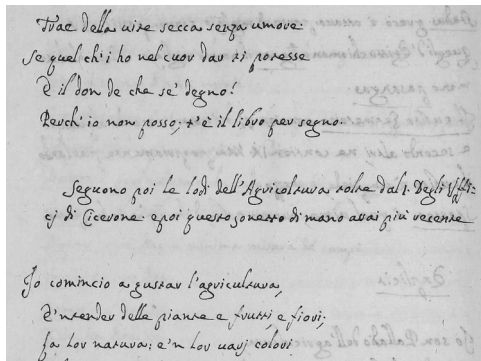 Trae della vite secca senza umore.
Se quel ch'i ho nel cuor dar ti potesse
È il don de che se' degno!
Perch' io non posso; t'è il libro per segno.
Seguono poi le lodi dell'Agricoltura tolte dal 1. degli Uffi=
cj di Cicerone. e poi questo sonetto di mano assai più recente
Io comincio a gustar l'agricultura,
E'ntender delle piante e frutti e fiori;
La lor natura: e'n lor varj colori